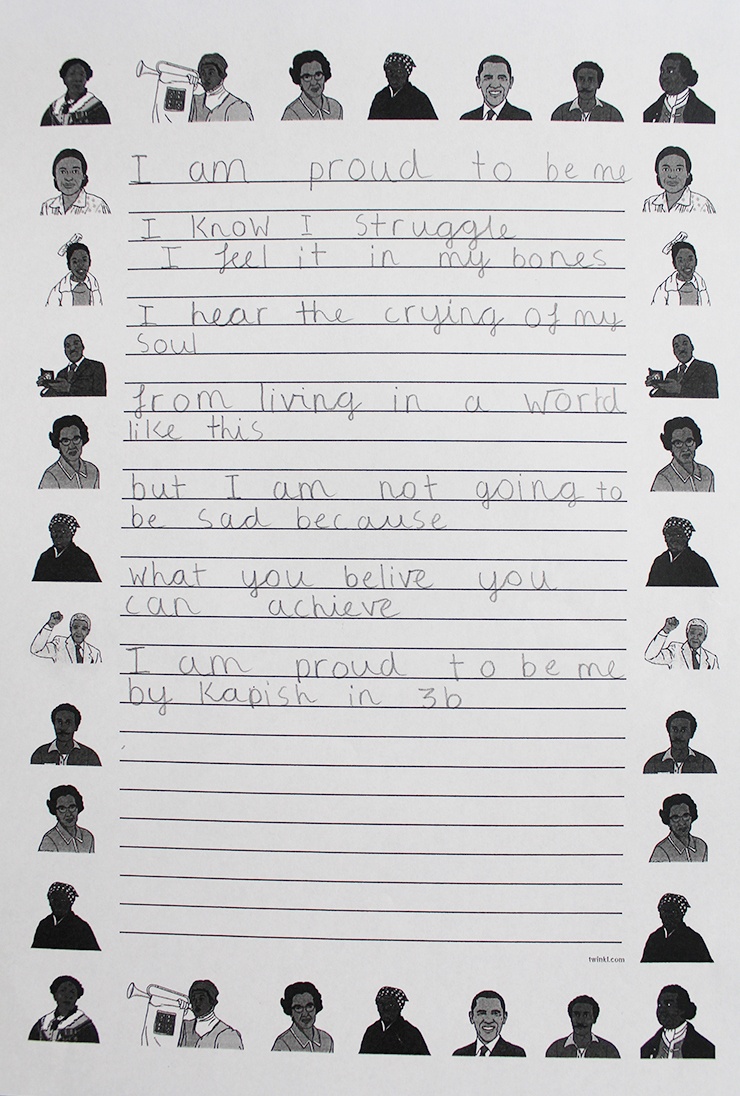 I am proud to be me
I know I struggle
I feel it in my bones
I hear the crying of my
soul
from living in a world
like this
but I am not going to
be sad because
what you belive you
can achieve
I am proud to be me
by Kapish in 3b
twinkl.com